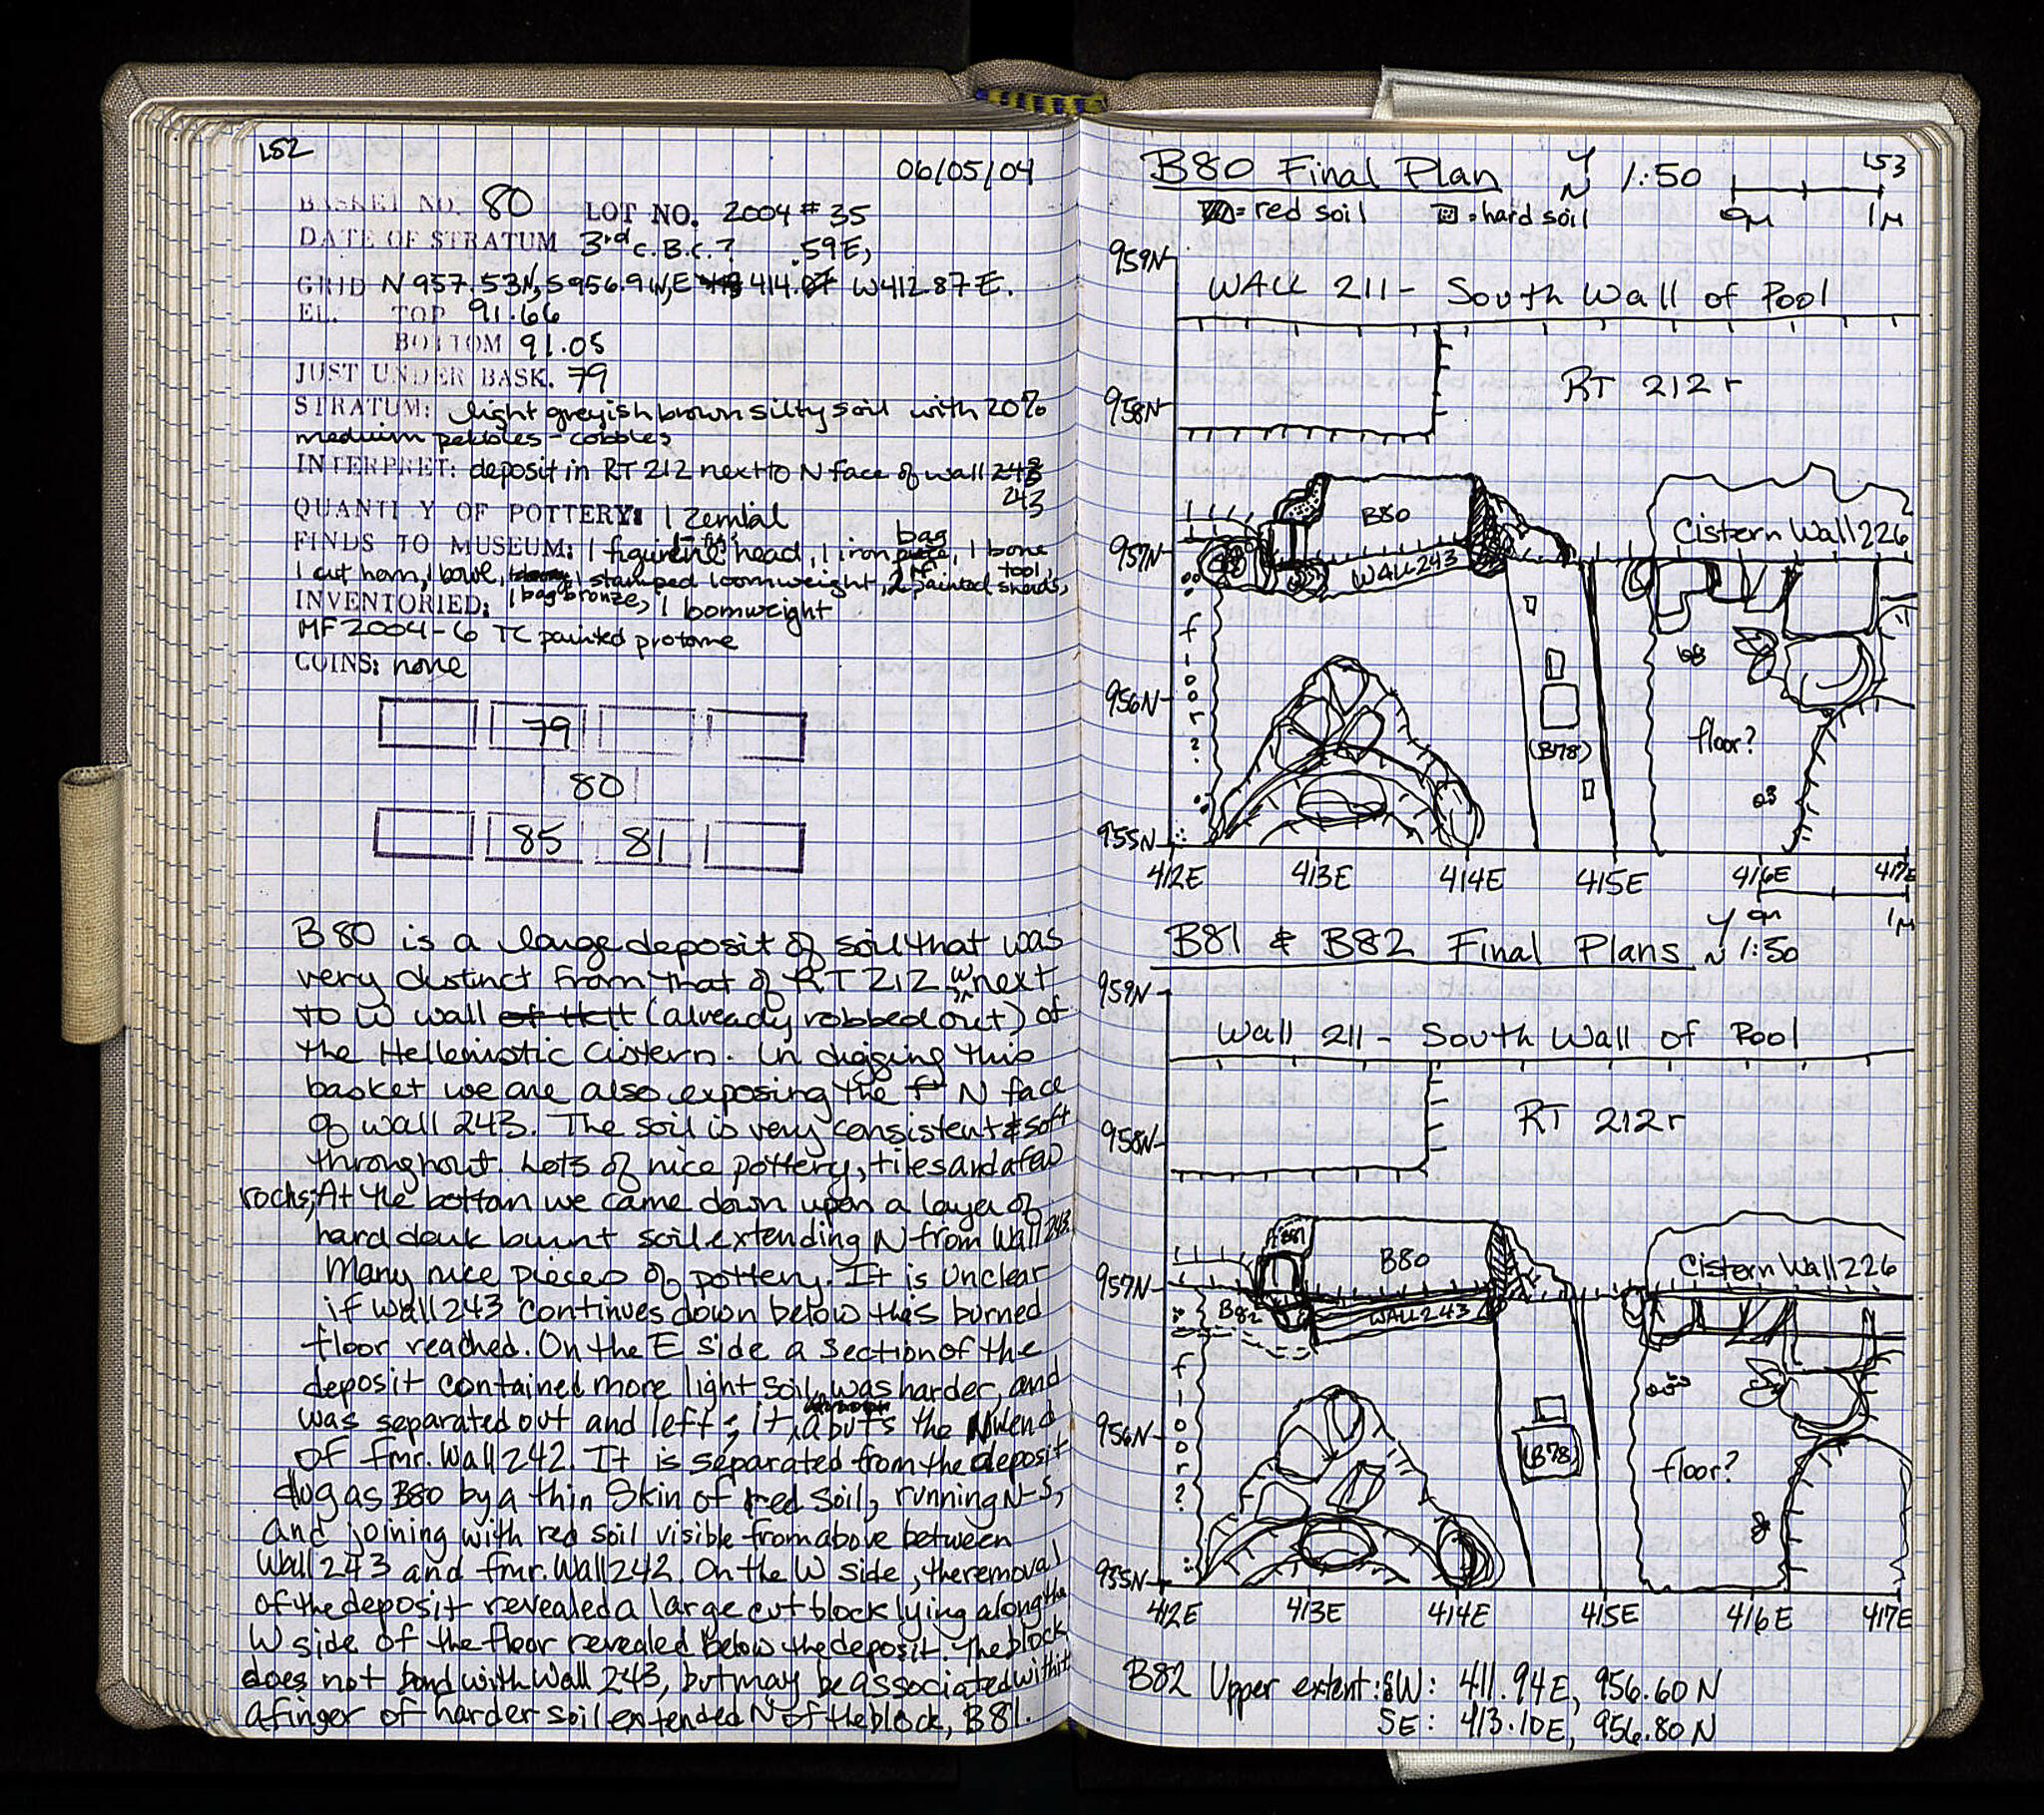 152
06/05/04
BASKET NO. 80 LOT NO. 2004 # 35
DATE OF STRATUM 3rd c. B.C.? .59E,
GRID N 957.53N, S 956.91N, E 414. W 412.87 E.
EL. TOP 91.66
BOTTOM 91.05
JUST UNDER BASK. 79
STRATUM: light greyish brown silty soil with 20%
medium pebbles - cobbles
INTERPRET: deposit in RT 212 next to N face of wall 243
243
QUANTITY OF POTTERY: 1 zembil
FINDS TO MUSEUM: 1 figurine head, 1 iron bag, 1 bone tool,
1 cut horn, 1 bowl, 1 stamped loomweight, 2 painted sherds,
1 bag bronze, 1 loomweight
INVENTORIED:
MF 2004-6 TC painted protome
COINS: none
79
80
85 81
B 80 is a large deposit of soil that was
very distinct from that of RT 212 W next
to W wall of (already robbed out) of
the Hellenistic Cistern. In digging this
basket we are also exposing the N face
of wall 243. The soil is very consistent & soft
throughout. Lots of nice pottery, tiles and a few
rocks; At the bottom we came down upon a layer of
hard dark burnt soil extending N from Wall 243.
Many nice pieces of pottery. It is unclear
if wall 243 continues down below this burned
floor reached. On the E side a section of the
deposit contained more light soil, was harder, and
was separated out and left; it abuts the N end
of fmr. Wall 242. It is separated from the deposit
dug as B80 by a thin skin of red soil, running N-S,
and joining with red soil visible from above between
Wall 243 and fmr. Wall 242. On the W side, the removal
of the deposit revealed a large cut block lying along the
W side of the floor revealed below the deposit. The block
does not bond with Wall 243, but may be associated with it.
A finger of harder soil extended N of the block, B81.
153
B80 Final Plan N 1:50
0M 1M
= red soil = hard soil
959N
WALL 211 - South Wall of Pool
RT 212 r
958N
B80
Cistern Wall 226
957N
WALL 243
floor?
956N
(B78)
floor?
955N
412E 413E 414E 415E 416E 417E
0M 1M
B81 & B82 Final Plans N 1:50
959N
Wall 211 - South Wall of Pool
RT 212 r
958N
B81
B80
Cistern Wall 226
957N
B82
WALL 243
floor?
956N
(B78)
floor?
955N
412E 413E 414E 415E 416E 417E
B82 Upper extent: SW: 411.94E, 956.60 N
SE: 413.10E, 956.80 N